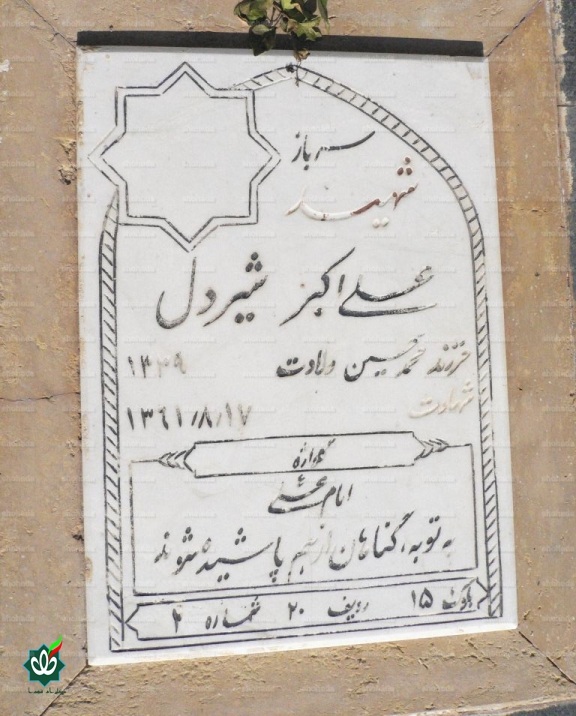 سرباز
شهید
علی اکبر شیردل
فرزند محمدحسین ولادت ۱۳۳۹
شهادت ۱۳۶۱/۸/۱۷
امام علی
به توبه، گناهان از هم پاشیده شوند
بلوک ۱۵ ردیف ۲۰ شماره ۲